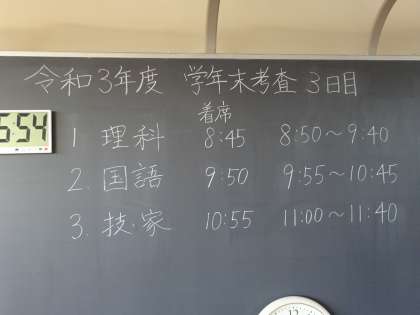 令和3年度 学年末考査 3日目
着席
1 理科 8:45 8:50～9:40
2. 国語 9:50 9:55～10:45
3. 技・家 10:55 11:00～11:40
5:54
12